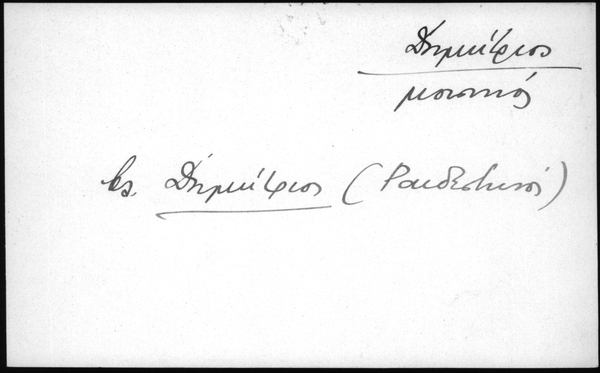 Δημήτριος
μουσικός
βλ. Δημήτριος (Ραιδεστηνός)